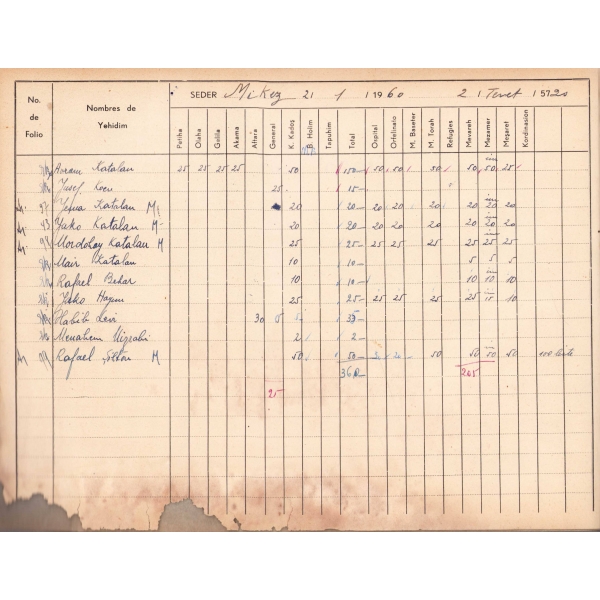 SEDER Mikez 21 / 1 / 1960 2 / Tevet / 5720
No. de Folio Nombres de Yehidim Patiha Olaha Gelila Akama Aftara General K. Kadoş B. Holim Tapuhim Total Ospital Orfelinato M. Baseter M. Torah Refugies Mevareh Mezamer Meşaret Kordinasion
Avram Katalan 25 25 25 25 50 150 50 50 50 50 50 25
Jusef Koen 25 15
Katalan M 20 20 20 20 20 20 20 20
93 Yako Katalan M 20 20 20 20 20 20 20 20
94 Mordohay Katalan M 25 25 25 25 25 25 25 25
Mair Katalan 10 10 5 5 5
Rafael Behar 10 10 10 10 10
Hayim 25 25 25 25 25 25 10
Habib Levi 30 5 35
Menahem Mizrahi 2 2
Rafael M 50 50 50 50 50 50
360 265
25